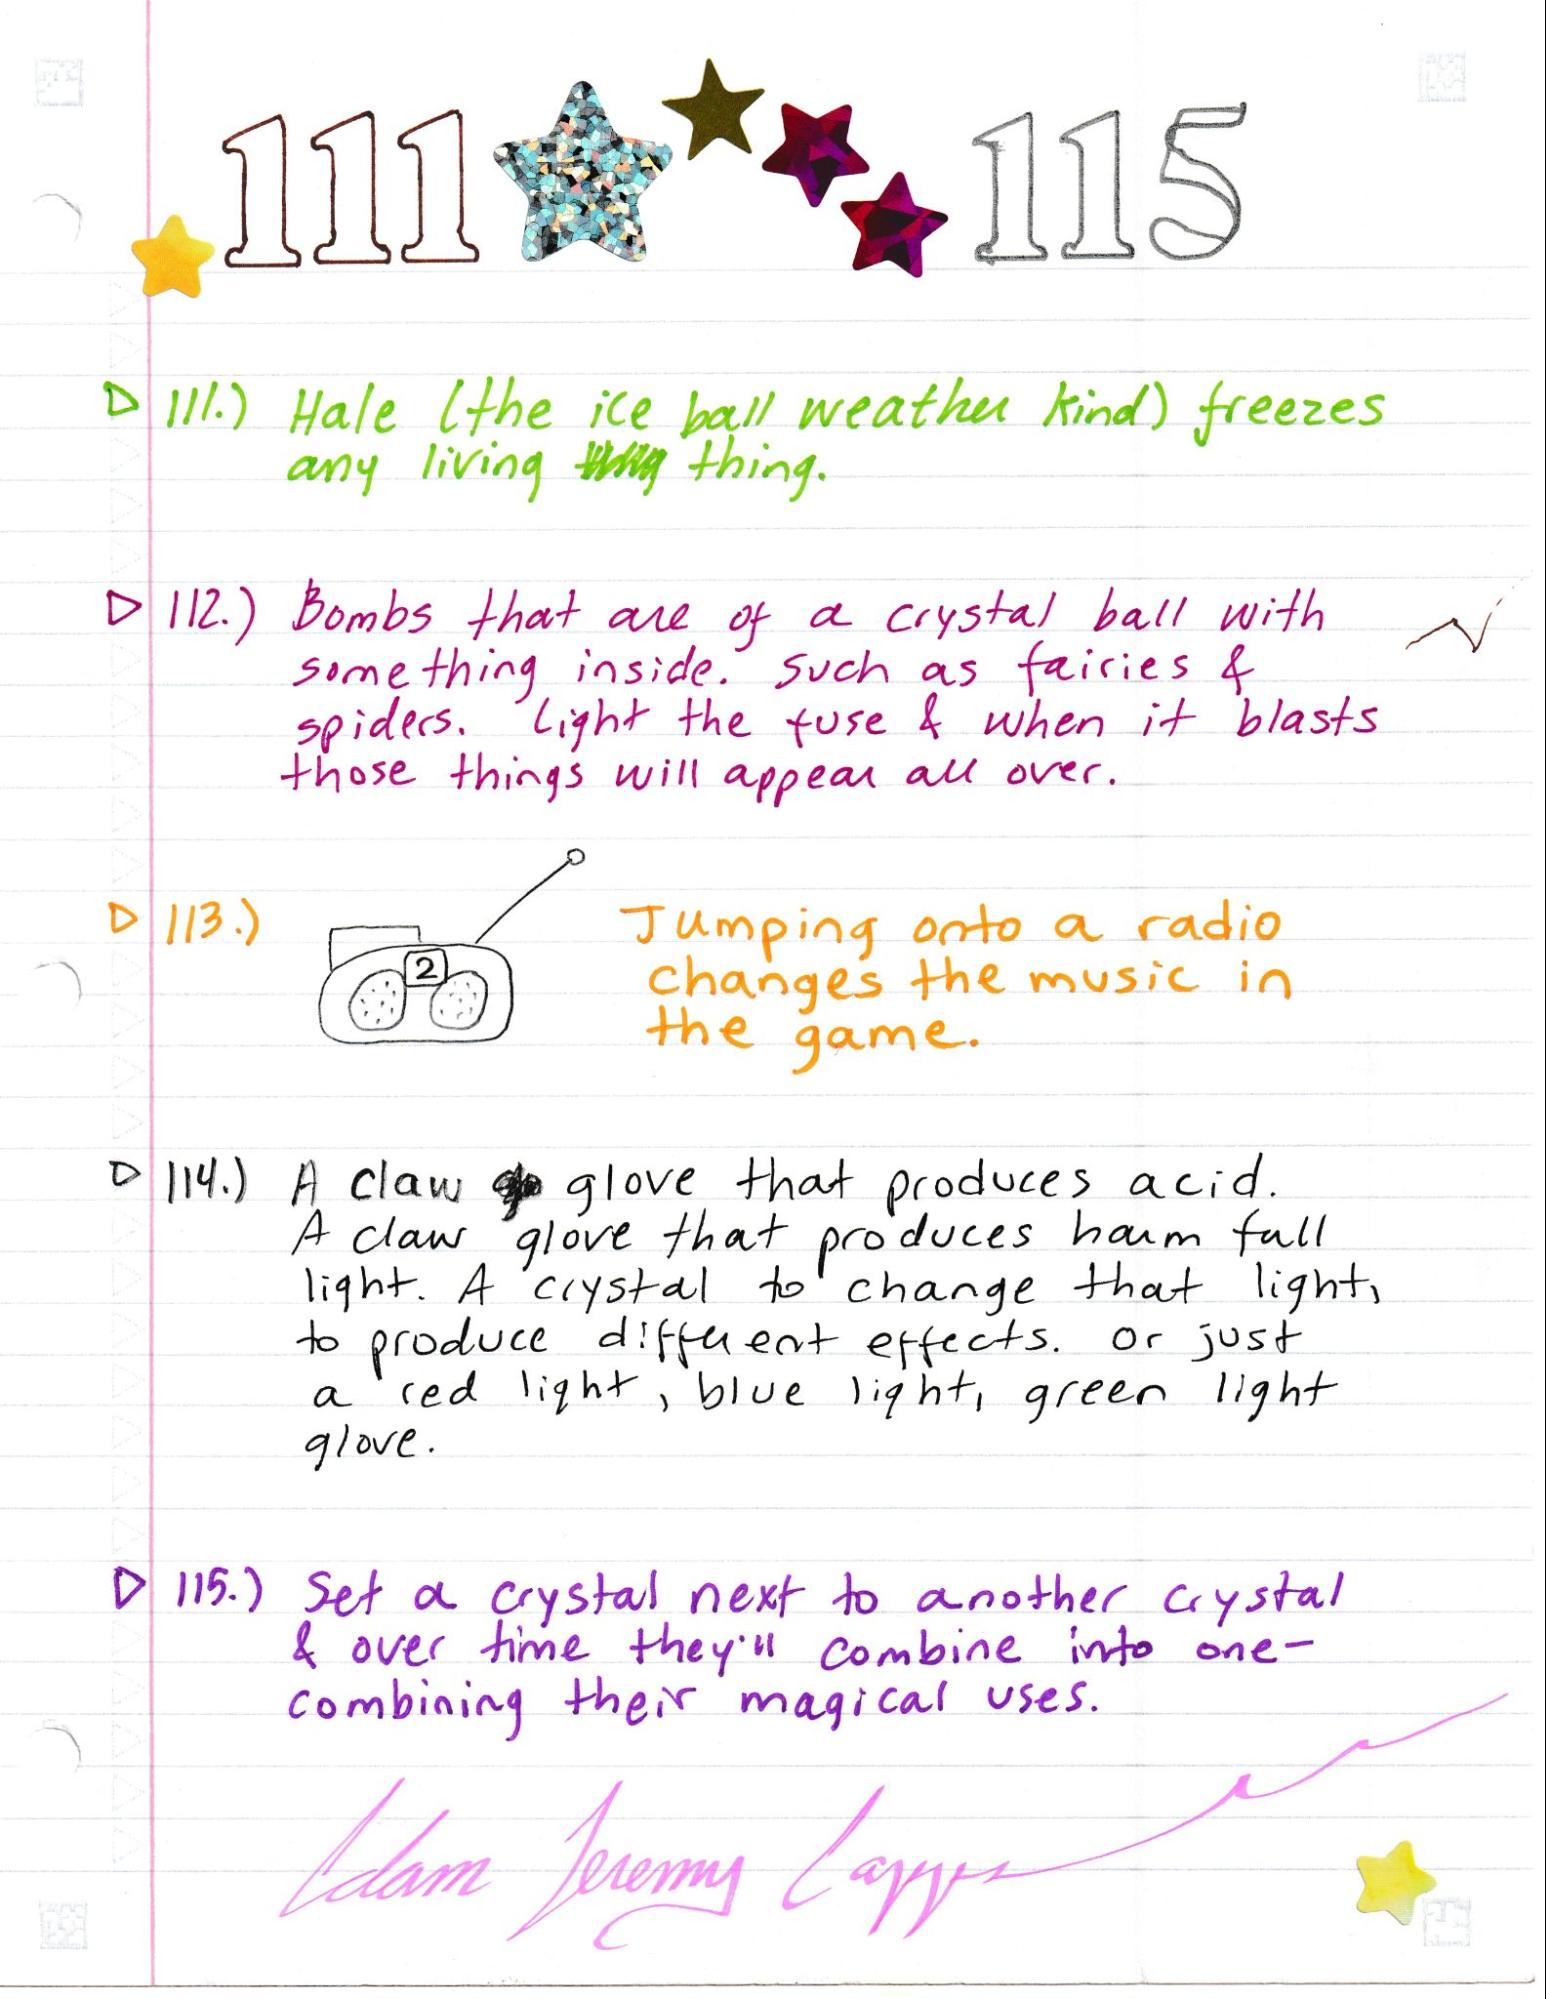 111 115
111.) Hale (the ice ball weather kind) freezes
any living thing.
112.) Bombs that are of a crystal ball with
something inside. Such as fairies &
spiders. Light the fuse & when it blasts
those things will appear all over.
113.)
2
Jumping onto a radio
changes the music in
the game.
114.) A claw glove that produces acid.
A claw glove that produces harm full
light. A crystal to change that light,
to produce different effects. Or just
a red light, blue light, green light
glove.
115.) Set a crystal next to another crystal
& over time they'll combine into one-
combining their magical uses.
Adam Jeremy